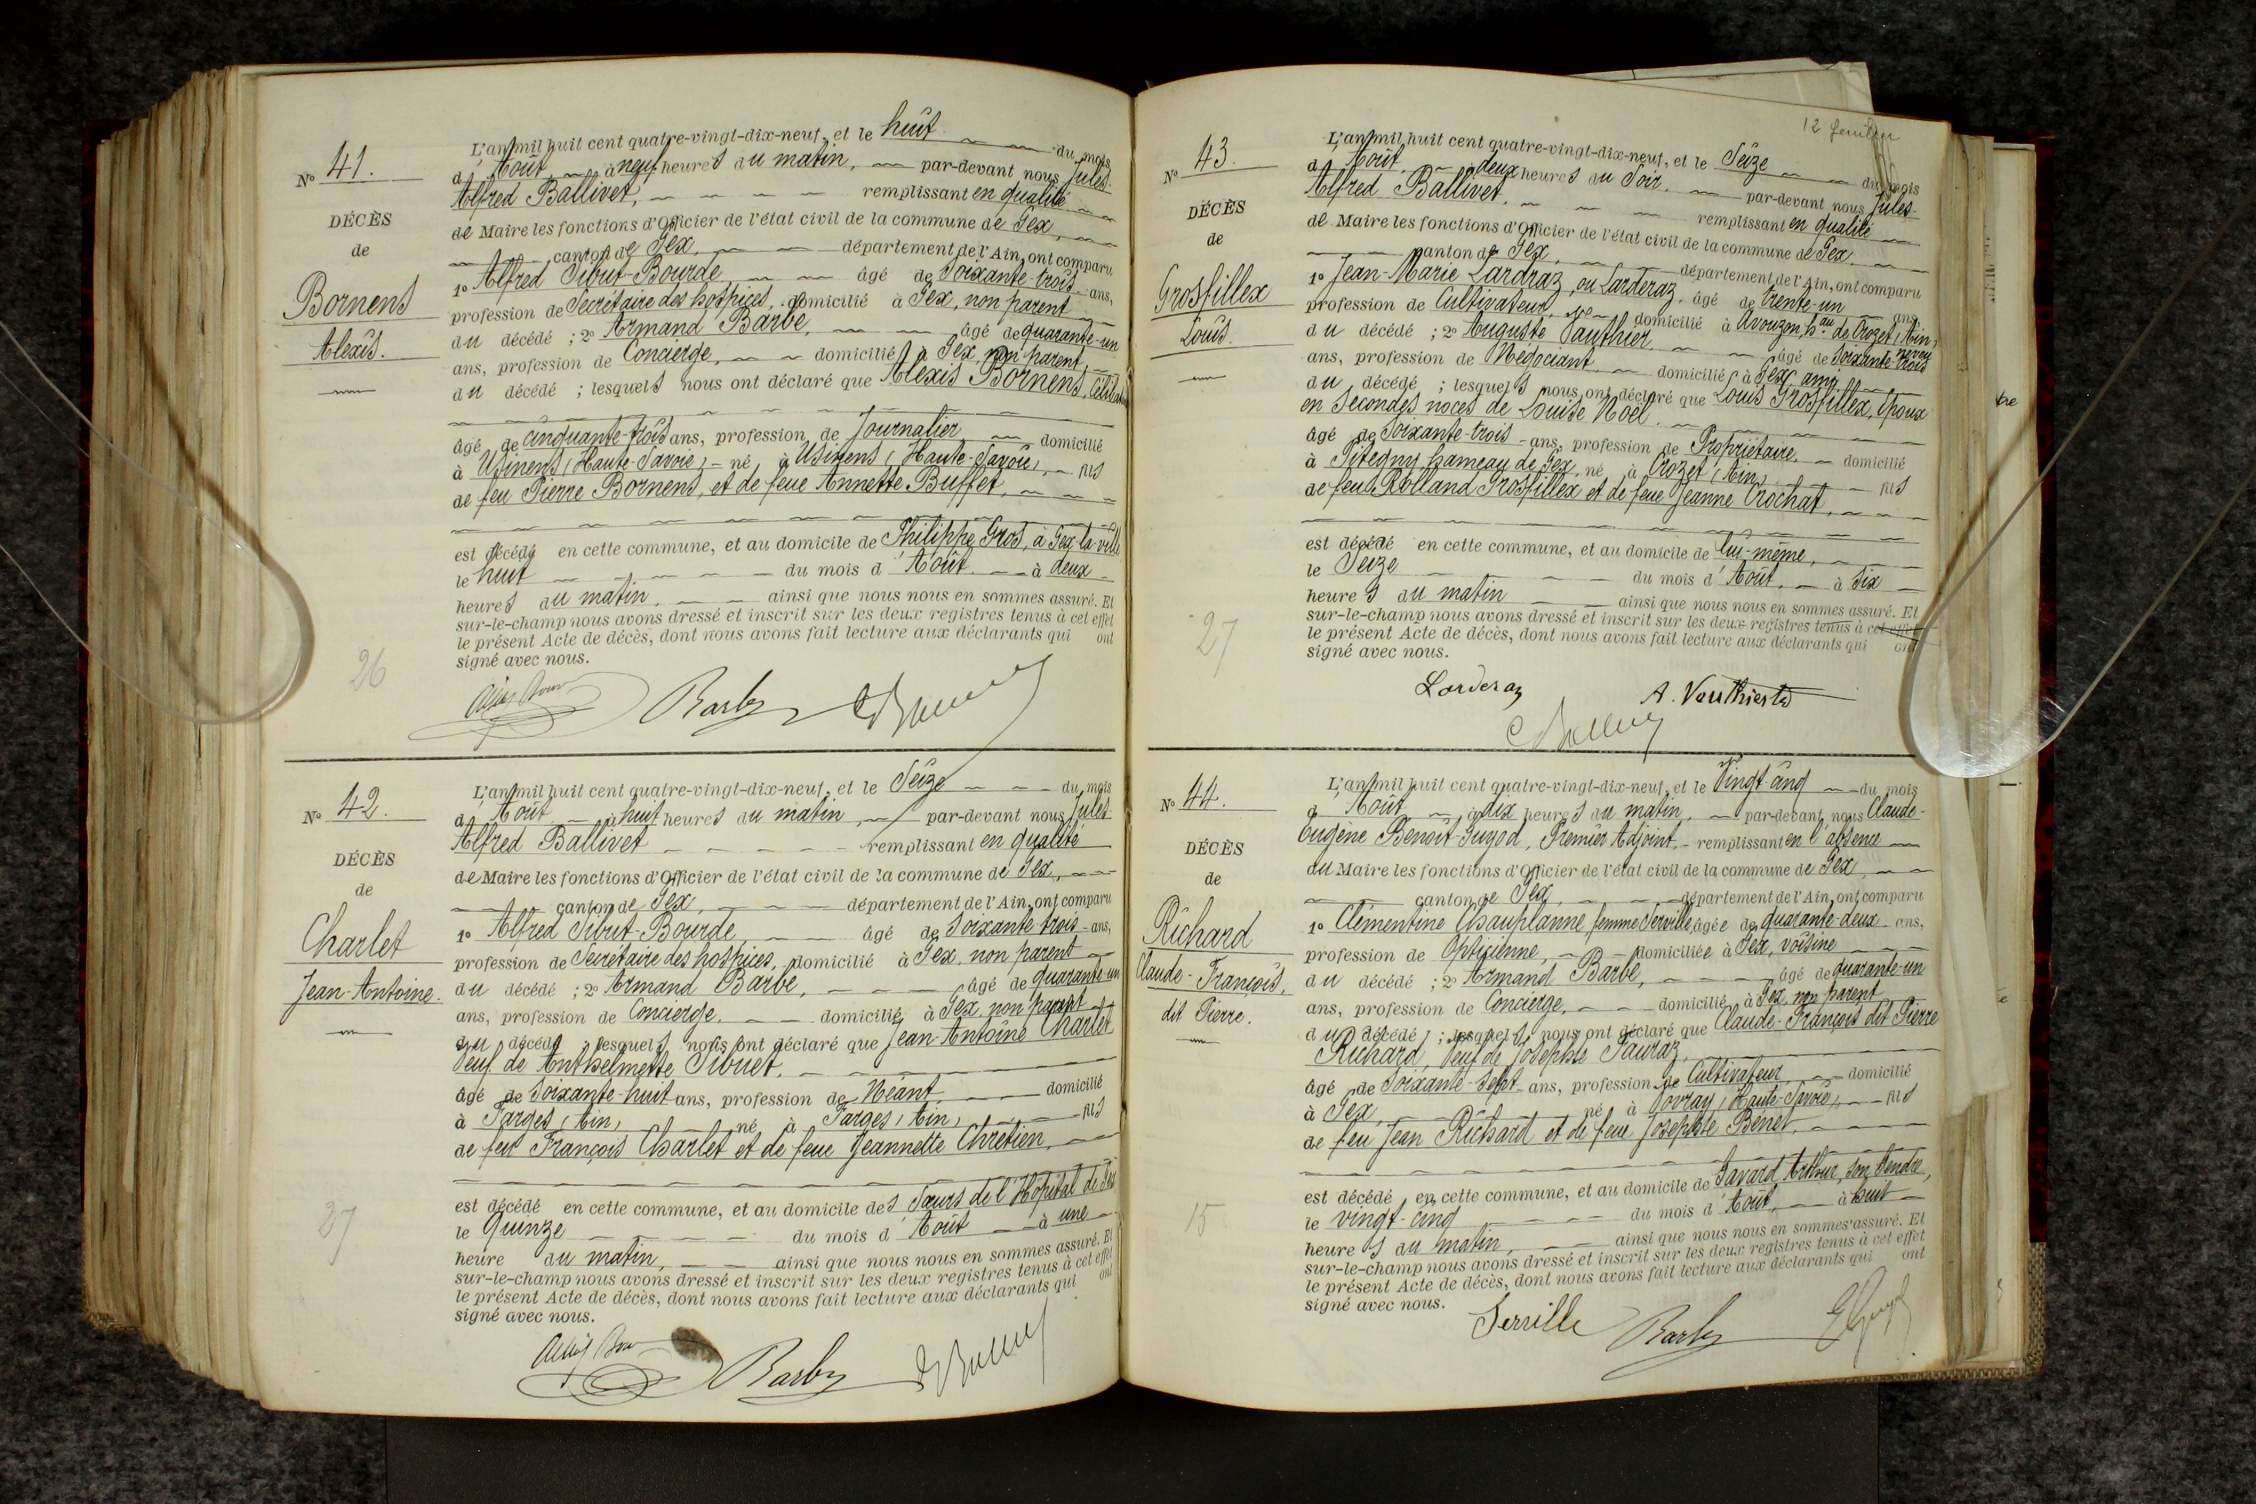 No 41.
DÉCÈS
de
Bornens
Alexis.
L'an mil huit cent quatre-vingt-dix-neuf, et le huit du mois
d'Août, à neuf heures du matin, par-devant nous Jules-
Alfred Ballivet, remplissant en qualité
de Maire les fonctions d'Officier de l'état civil de la commune de Gex,
canton de Gex, département de l'Ain, ont comparu
1o Alfred Sibut-Bourde, âgé de Soixante-trois ans,
profession de Secrétaire des hospices, domicilié à Gex, non parent
du décédé ; 2o Armand Barbe, âgé de quarante-un
ans, profession de Concierge, domicilié à Gex, non parent,
du décédé ; lesquels nous ont déclaré que Alexis Bornens, Célibataire
âgé de cinquante-trois ans, profession de Journalier domicilié
à Usinens (Haute-Savoie) né à Usinens (Haute-Savoie), fils
de feu Pierre Bornens, et de feue Annette Buffet,
est décédé en cette commune, et au domicile de Philippe Gros, à Gex-la-ville
le huit du mois d'Août à deux
heures du matin, ainsi que nous nous en sommes assuré. Et
sur-le-champ nous avons dressé et inscrit sur les deux registres tenus à cet effet
le présent Acte de décès, dont nous avons fait lecture aux déclarants qui ont
signé avec nous.
26
Barbe
No 42.
DÉCÈS
de
Charlet
Jean-Antoine.
L'an mil huit cent quatre-vingt-dix-neuf, et le Seize du mois
d'Août à huit heures du matin, par-devant nous Jules-
Alfred Ballivet remplissant en qualité
de Maire les fonctions d'Officier de l'état civil de la commune de Gex,
canton de Gex, département de l'Ain, ont comparu
1o Alfred Sibut-Bourde âgé de Soixante trois ans,
profession de Secrétaire des hospices, domicilié à Gex, non parent
du décédé ; 2o Armand Barbe, âgé de quarante-un
ans, profession de Concierge, domicilié à Gex, non parent
du décédé lesquels nous ont déclaré que Jean-Antoine Charlet
Veuf de Anthelmette Sibuet,
âgé de Soixante-huit ans, profession de Néant, domicilié
à Farges (Ain) né à Farges (Ain) fils
de feu François Charlet et de feue Jeannette Chrétien,
est décédé en cette commune, et au domicile des Sœurs de l'Hôpital de Gex
le Quinze du mois d'Août à une
heure du matin, ainsi que nous nous en sommes assuré. Et
sur-le-champ nous avons dressé et inscrit sur les deux registres tenus à cet effet
le présent Acte de décès, dont nous avons fait lecture aux déclarants qui ont
signé avec nous.
27
Barbe
12
No 43.
DÉCÈS
de
Grosfillex
Louis.
L'an mil huit cent quatre-vingt-dix-neuf, et le Seize du mois
d'Août, à deux heures du Soir, par-devant nous Jules-
Alfred Ballivet, remplissant en qualité
de Maire les fonctions d'Officier de l'état civil de la commune de Gex
canton de Gex, département de l'Ain, ont comparu
1o Jean-Marie Lardraz, ou Larderaz, âgé de trente-un ans
profession de Cultivateur, domicilié à Avouzon, hau de Crozet (Ain) neveu
du décédé ; 2o Auguste Vauthier, âgé de Soixante-trois
ans, profession de Négociant, domicilié à Gex, ami
du décédé ; lesquels nous ont déclaré que Louis Grosfillex, Epoux
en Secondes noces de Louise Noël.
âgé de Soixante-trois ans, profession de Propriétaire, domicilié
à Pitegny, hameau de Gex, né à Crozet (Ain) fils
de feu Rolland Grosfillex et de feue Jeanne Crochat,
est décédé en cette commune, et au domicile de lui-même,
le Seize du mois d'Août, à Six
heures du matin ainsi que nous nous en sommes assuré. Et
sur-le-champ nous avons dressé et inscrit sur les deux registres tenus à cet effet
le présent Acte de décès, dont nous avons fait lecture aux déclarants qui ont
signé avec nous.
27
Larderaz A. Vauthier
No 44.
DÉCÈS
de
Richard
Claude-François,
dit Pierre.
L'an mil huit cent quatre-vingt-dix-neuf, et le Vingt-cinq du mois
d'Août à dix heures du matin, par-devant nous Claude-
Eugène Benoît-Guyod, Premier Adjoint, remplissant en l'absence
du Maire les fonctions d'Officier de l'état civil de la commune de Gex,
canton de Gex, département de l'Ain, ont comparu
1o Clémentine Chauplanne femme Serville âgée de quarante-deux ans,
profession de Opticienne, domiciliée à Gex, voisine
du décédé ; 2o Armand Barbe, âgé de quarante-un
ans, profession de Concierge, domicilié à Gex, non parent
du décédé ; lesquels nous ont déclaré que Claude-François dit Pierre
Richard, Veuf de Josephte Pauraz,
âgé de Soixante-Sept ans, profession de Cultivateur, domicilié
à Gex, né à Vovray (Haute-Savoie), fils
de feu Jean Richard et de feue Josephte Bénet,
est décédé en cette commune, et au domicile de Savard, Arthur, son Gendre,
le vingt-cinq du mois d'Août, à huit
heures du matin, ainsi que nous nous en sommes assuré. Et
sur-le-champ nous avons dressé et inscrit sur les deux registres tenus à cet effet
le présent Acte de décès, dont nous avons fait lecture aux déclarants qui ont
signé avec nous.
15
Serville Barbe